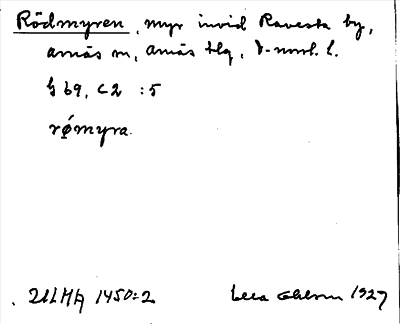 Rödmyren, myr invid Ravesta by,
Arnäs sn, Arnäs tlg, V-norrl. l.
G 69, C2 :5
rø̀myra.
ULMA 1450:2 1927